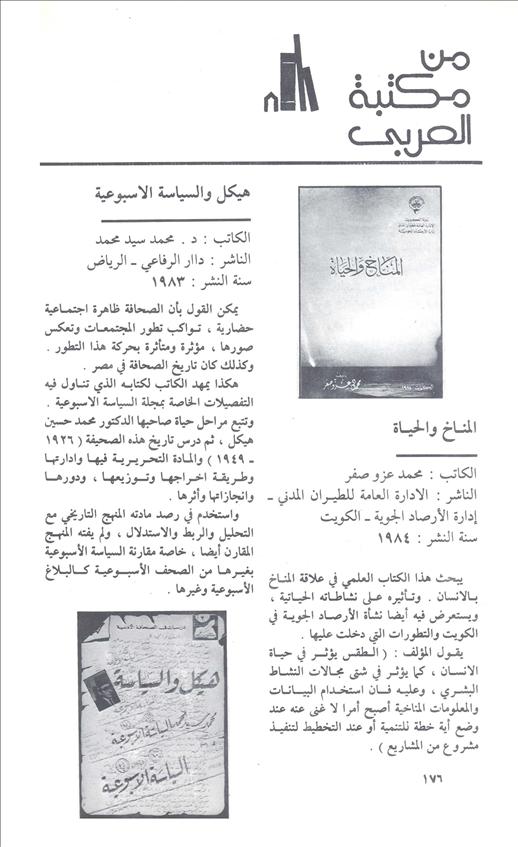 من
مكتبة
العربي
المناخ والحياة
المناخ والحياة
الكاتب : محمد عزو صفر
الناشر : الادارة العامة للطيران المدني ـ
إدارة الأرصاد الجوية ـ الكويت
سنة النشر : ١٩٨٤
يبحث هذا الكتاب العلمي في علاقة المناخ
بالانسان . وتأثيره على نشاطاته الحياتية ،
ويستعرض فيه أيضا نشأة الأرصاد الجوية في
الكويت والتطورات التي دخلت عليها .
يقول المؤلف : ( الطقس يؤثر في حياة
الانسان ، كما يؤثر في شتى مجالات النشاط
البشري ، وعليه فان استخدام البيانات
والمعلومات المناخية أصبح أمرا لا غنى عنه عند
وضع أية خطة للتنمية أو عند التخطيط لتنفيذ
مشروع من المشاريع ) .
هيكل والسياسة الاسبوعية
الكاتب : د . محمد سيد محمد
الناشر : داار الرفاعي ـ الرياض
سنة النشر : ١٩٨٣
يمكن القول بأن الصحافة ظاهرة اجتماعية
حضارية ، تواكب تطور المجتمعات وتعكس
صورها ، مؤثرة ومتأثرة بحركة هذا التطور .
وكذلك كان تاريخ الصحافة في مصر .
هكذا يمهد الكاتب لكتابه الذي تناول فيه
التفصيلات الخاصة بمجلة السياسة الاسبوعية .
وتتبع مراحل حياة صاحبها الدكتور محمد حسين
هيكل ، ثم درس تاريخ هذه الصحيفة ( ١٩٢٦
ـ ١٩٤٩ ) والمادة التحريرية فيها وادارتها
وطريقة اخراجها وتوزيعها ، ودورها
وانجازاتها وأثرها .
واستخدم في رصد مادته المنهج التاريخي مع
التحليل والربط والاستدلال ، ولم يفته المنهج
المقارن أيضا ، خاصة مقارنة السياسة الأسبوعية
بغيرها من الصحف الأسبوعية كالبلاغ
الأسبوعية وغيرها .
هيكل والسياسة
السياسة الاسبوعية
السياسة الاسبوعية
١٧٦